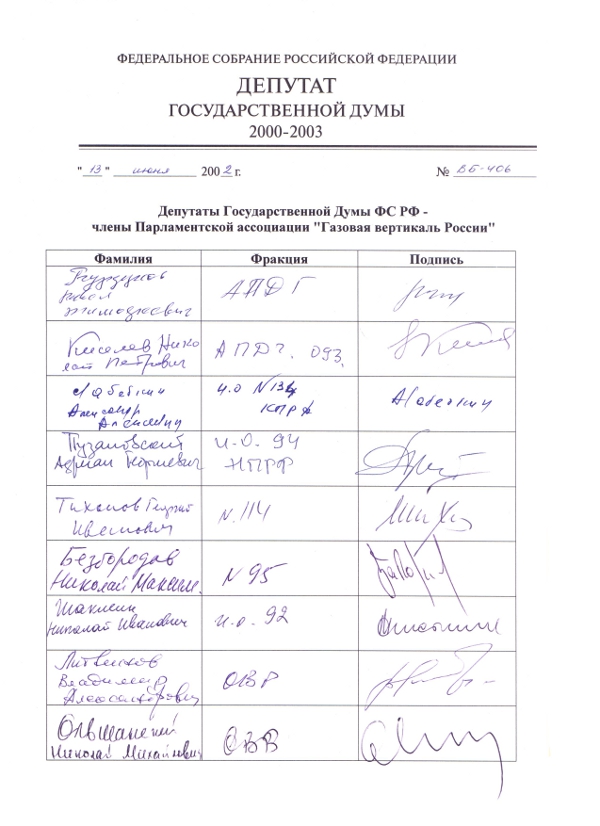 ФЕДЕРАЛЬНОЕ СОБРАНИЕ РОССИЙСКОЙ ФЕДЕРАЦИИ
ДЕПУТАТ
ГОСУДАРСТВЕННОЙ ДУМЫ
2000-2003
"13" июня 2002 г. № ВБ-406
Депутаты Государственной Думы ФС РФ -
члены Парламентской ассоциации "Газовая вертикаль России"
Фамилия Фракция Подпись
АПДГ
Киселев Нико
лай Петрович
АПДГ. 093
Лабейкин
Александр
Алексеевич
и.о N134
КПРФ
Пузановский
Адриан
и.о. 94
Тихонов Георгий
Иванович
N. 114
Безбородов
Николай Максим.
N 95
Шаклеин
Николай Иванович
и.о. 92
Литвинов
Владимир
Александрович
ОВР
Ольшанский
Николай Михайлович
ОВР